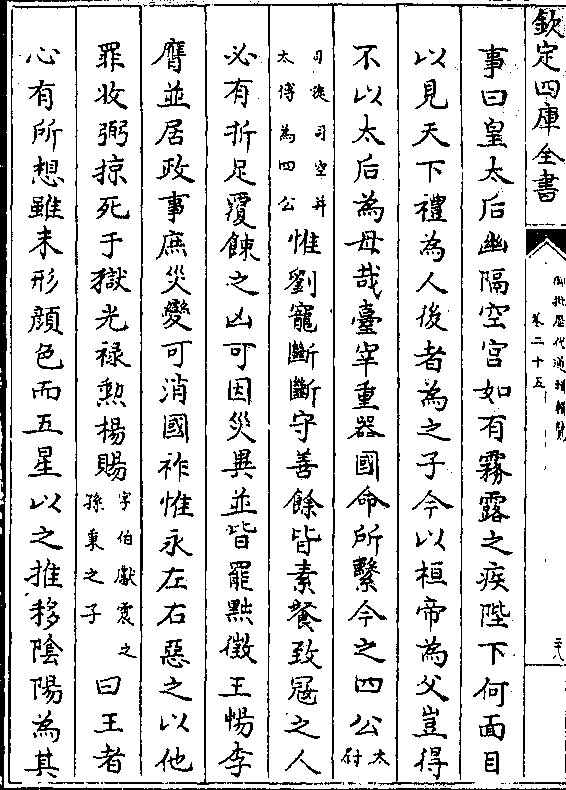 欽定四庫全書
御批歷代通鑑輯覽
卷二十五
二十八
事曰皇太后幽隔空宫如有霧露之疾陛下何面目
以見天下禮為人後者為之子今以桓帝為父豈得
不以太后為母哉臺宰重器國命所繫今之四公太尉
司徒司空并太傅為四公惟劉寵斷斷守善餘皆素餐致冦之人
必有折足覆餗之凶可因災異並皆罷黜徵王暢李
膺並居政事庶災變可消國祚惟永左右惡之以他
罪收弼掠死于獄光禄勲楊賜字伯獻震之孫秉之子曰王者
心有所想雖未形顔色而五星以之推移隂陽為其